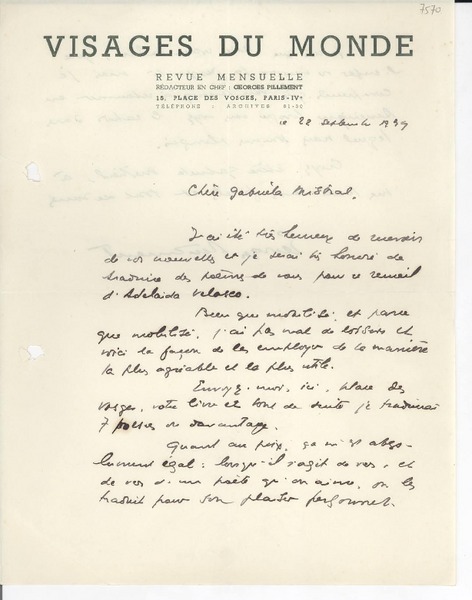 7570
VISAGES DU MONDE
REVUE MENSUELLE
RÉDACTEUR EN CHEF : GEORGES PILLEMENT
15, PLACE DES VOSGES, PARIS-IVe
TÉLÉPHONE : ARCHIVES 81-50
le 22 Septembre 1939
Chère Gabriela Mistral,
J'ai été très heureux de recevoir
de vos nouvelles et je serai très honoré de
traduire des poèmes de vous pour ce recueil
d'Adelaida Velasco.
Bien que mobilisé, et parce
que mobilisé, j'ai pas mal de loisirs et
voici la façon de les employer de la manière
la plus agréable et la plus utile.
Envoyez-moi, ici, place des
Vosges, votre livre et tout de suite je traduirai
7 poèmes ou davantage.
Quant au prix, ça m'est abso-
lument égal : lorsqu'il s'agit de vers, et
de vers d'un poète qu'on aime, on les
traduit pour son plaisir personnel.